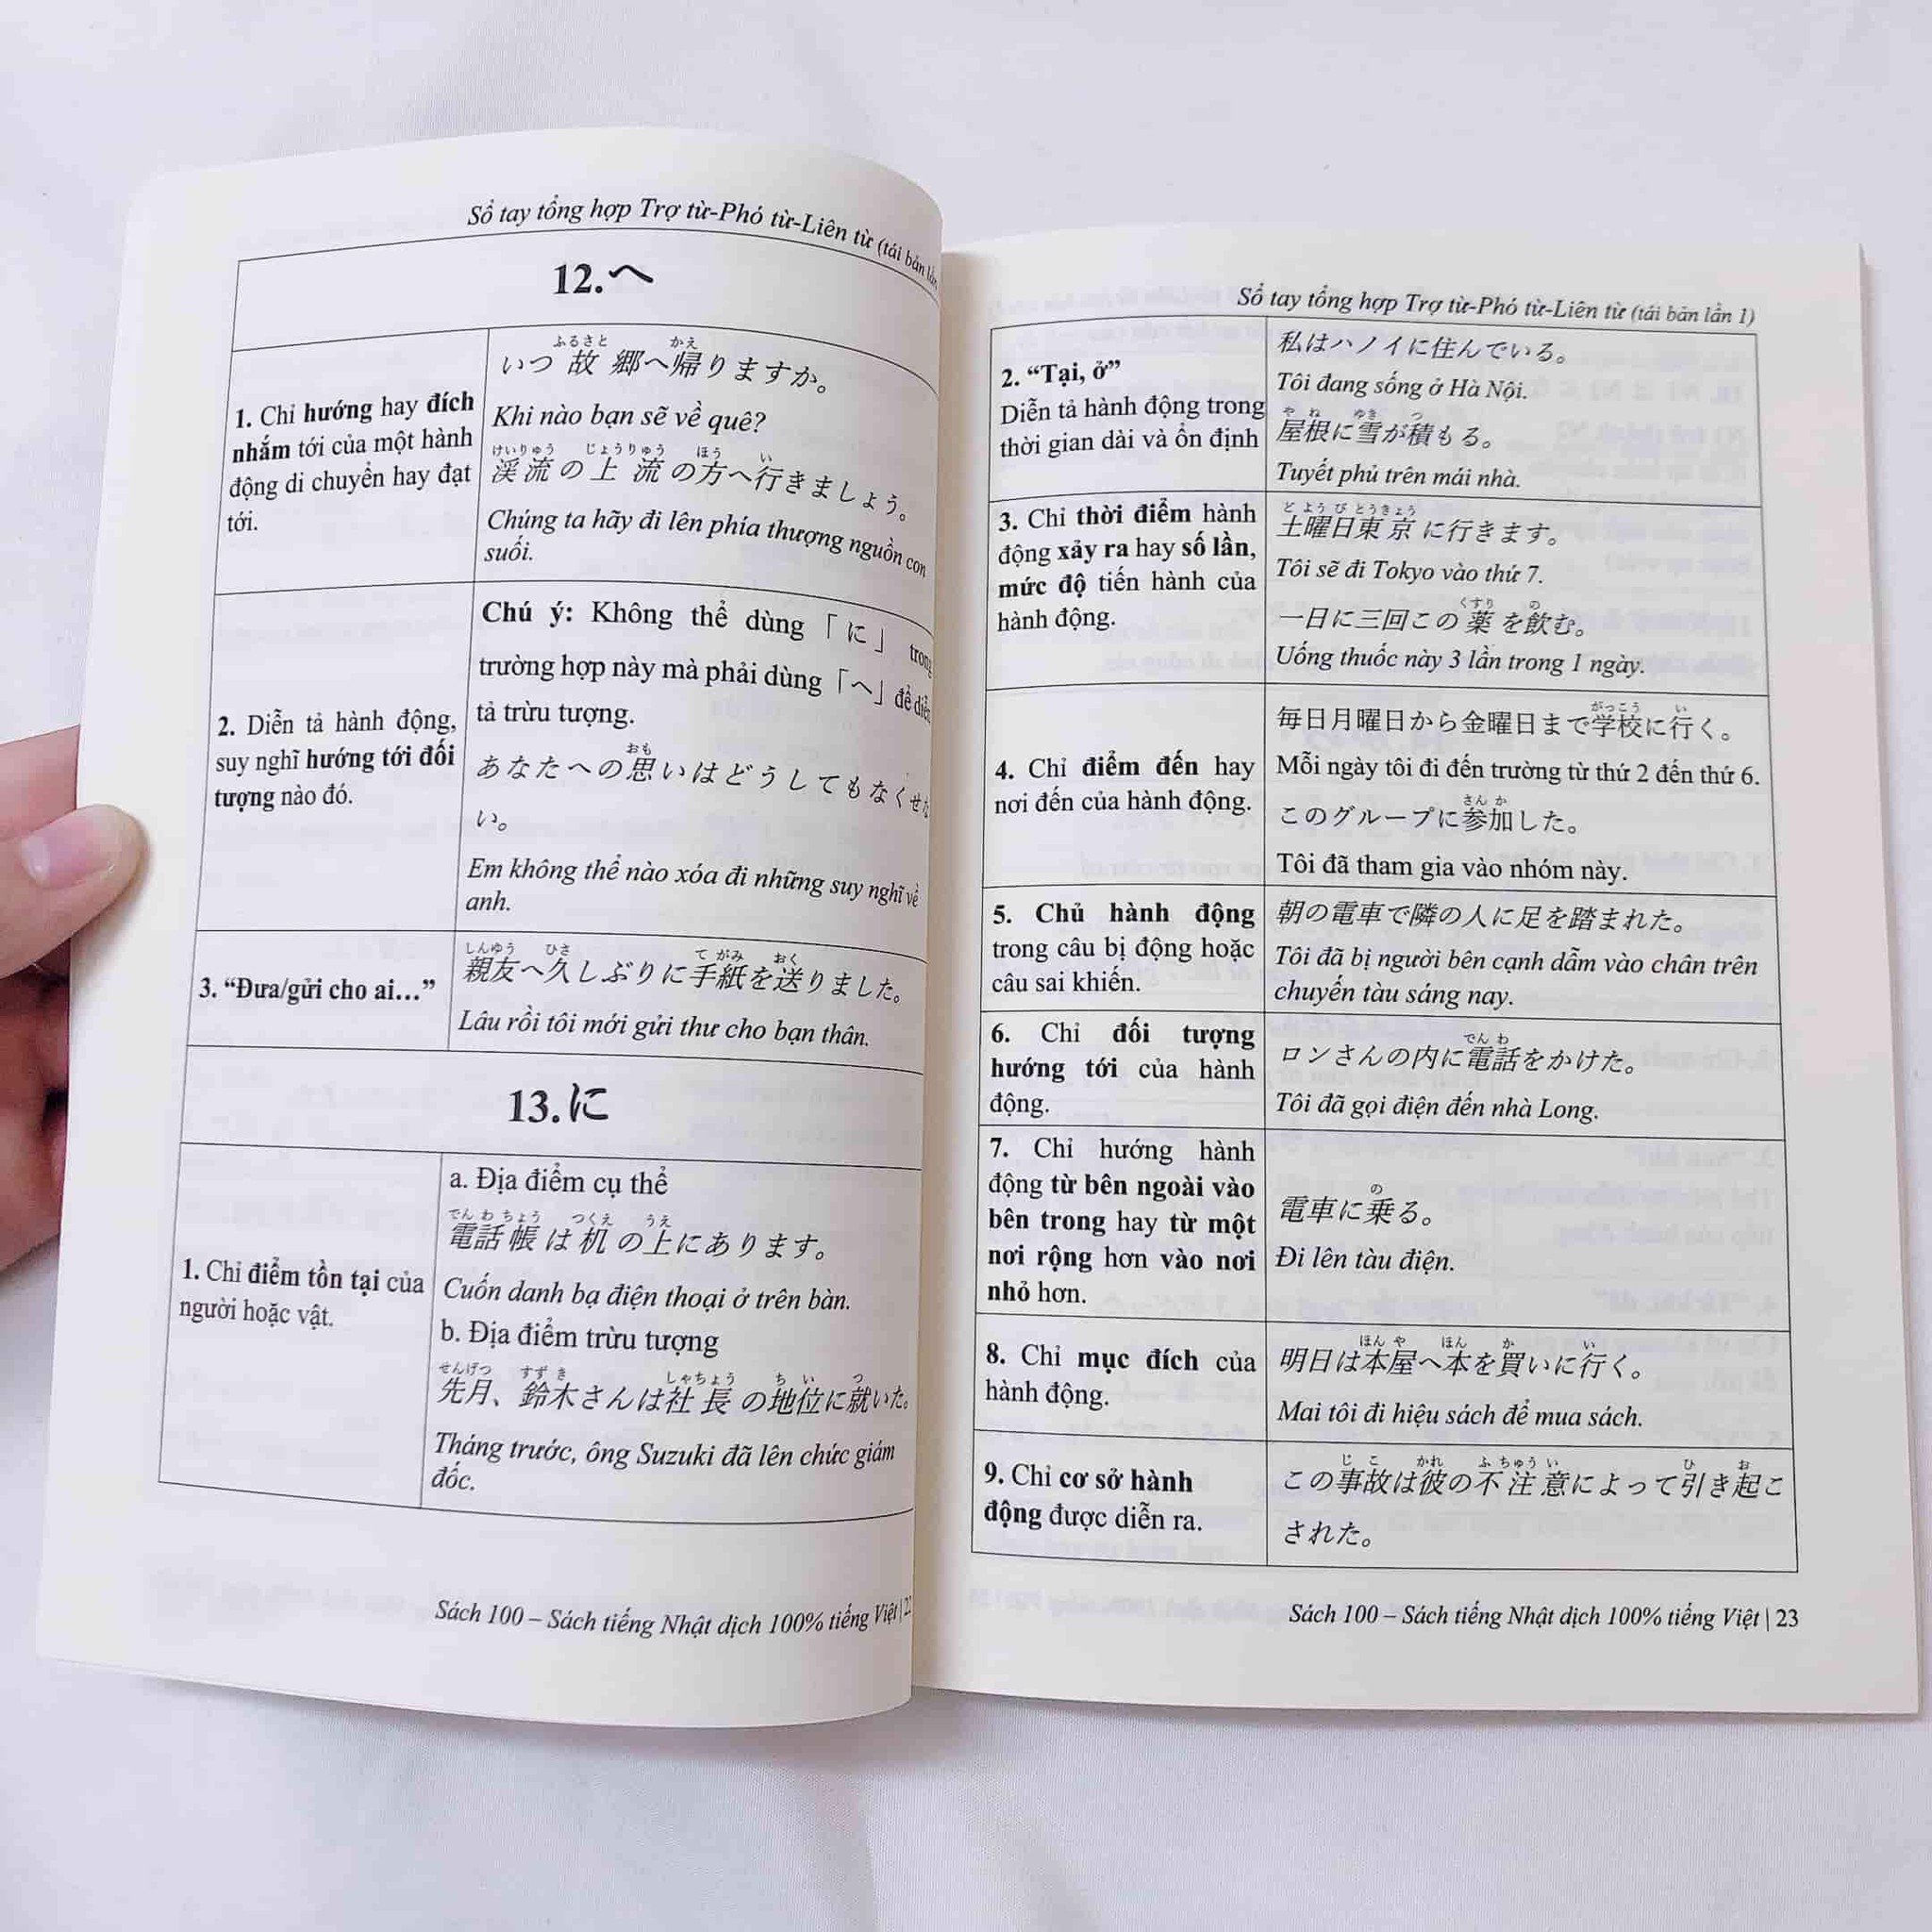 Sổ tay tổng hợp Trợ từ-Phó từ-Liên từ (tái bản lần
12.へ
1. Chỉ hướng hay đích
nhắm tới của một hành
động di chuyển hay đạt
tới.
いつ故郷へ帰りますか。
ふるさと かえ
Khi nào bạn sẽ về quê?
渓流の上流の方へ行きましょう。
けいりゅう じょうりゅう ほう い
Chúng ta hãy đi lên phía thượng nguồn con
suối.
2. Diễn tả hành động,
suy nghĩ hướng tới đối
tượng nào đó.
Chú ý: Không thể dùng「に」trong
trường hợp này mà phải dùng「へ」để diễn
tả trừu tượng.
あなたへの思いはどうしてもなくせな
おも
い。
Em không thể nào xóa đi những suy nghĩ về
anh.
3. “Đưa/gửi cho ai…”
親友へ久しぶりに手紙を送りました。
しんゆう ひさ てがみ おく
Lâu rồi tôi mới gửi thư cho bạn thân.
13.に
1. Chỉ điểm tồn tại của
người hoặc vật.
a. Địa điểm cụ thể
電話帳は机の上にあります。
でんわちょう つくえ うえ
Cuốn danh bạ điện thoại ở trên bàn.
b. Địa điểm trừu tượng
先月、鈴木さんは社長の地位に就いた。
せんげつ すずき しゃちょう ちい つ
Tháng trước, ông Suzuki đã lên chức giám
đốc.
Sách 100 – Sách tiếng Nhật dịch 100% tiếng Việt | 22
Sổ tay tổng hợp Trợ từ-Phó từ-Liên từ (tái bản lần 1)
2. “Tại, ở”
Diễn tả hành động trong
thời gian dài và ổn định
私はハノイに住んでいる。
Tôi đang sống ở Hà Nội.
屋根に雪が積もる。
やね ゆき つ
Tuyết phủ trên mái nhà.
3. Chỉ thời điểm hành
động xảy ra hay số lần,
mức độ tiến hành của
hành động.
土曜日東京に行きます。
どようびとうきょう
Tôi sẽ đi Tokyo vào thứ 7.
一日に三回この薬を飲む。
くすり の
Uống thuốc này 3 lần trong 1 ngày.
4. Chỉ điểm đến hay
nơi đến của hành động.
毎日月曜日から金曜日まで学校に行く。
がっこう い
Mỗi ngày tôi đi đến trường từ thứ 2 đến thứ 6.
このグループに参加した。
さんか
Tôi đã tham gia vào nhóm này.
5. Chủ hành động
trong câu bị động hoặc
câu sai khiến.
朝の電車で隣の人に足を踏まれた。
Tôi đã bị người bên cạnh dẫm vào chân trên
chuyến tàu sáng nay.
6. Chỉ đối tượng
hướng tới của hành
động.
ロンさんの内に電話をかけた。
でんわ
Tôi đã gọi điện đến nhà Long.
7. Chỉ hướng hành
động từ bên ngoài vào
bên trong hay từ một
nơi rộng hơn vào nơi
nhỏ hơn.
電車に乗る。
の
Đi lên tàu điện.
8. Chỉ mục đích của
hành động.
明日は本屋へ本を買いに行く。
ほんや ほん か い
Mai tôi đi hiệu sách để mua sách.
9. Chỉ cơ sở hành
động được diễn ra.
この事故は彼の不注意によって引き起こ
じこ かれ ふちゅうい ひ お
された。
Sách 100 – Sách tiếng Nhật dịch 100% tiếng Việt | 23